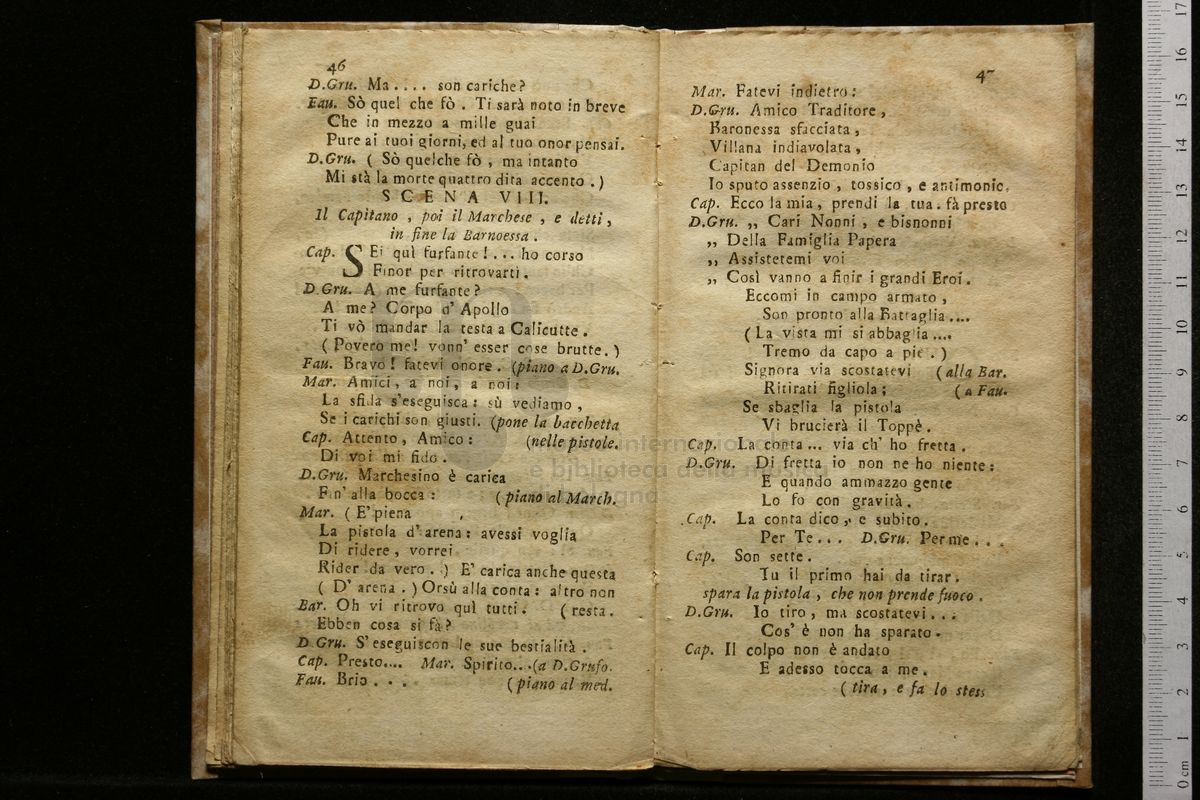 46
D.Gru. Ma . . . . son cariche?
Fau. Sò quel che fò . Ti sarà noto in breve
Che in mezzo a mille guai
Pure ai tuoi giorni, ed al tuo onor pensai.
D.Gru. ( Sò quelche fò , ma intanto
Mi stà la morte quattro dita accento . )
SCENA VIII.
Il Capitano , poi il Marchese , e detti ,
in fine la Barnoessa .
Cap. SEi quì furfante ! . . . ho corso
Finor per ritrovarti .
D.Gru. A me furfante?
A me? Corpo d' Apollo
Ti vò mandar la testa a Calicutte .
( Povero me! vonn' esser cose brutte. )
Fau. Bravo! fatevi onore . (piano a D.Gru.
Mar. Amici, a noi, a noi:
La sfida s'eseguisca: sù vediamo ,
Se i carichi son giusti. (pone la bacchetta
Cap. Attento, Amico: (nelle pistole.
Di voi mi fido.
D.Gru. Marchesino è carica
Fin' alla bocca: (piano al March.
Mar. ( E' piena
La pistola d' arena: avessi voglia
Di ridere, vorrei
Rider da vero . ) E' carica anche questa
( D' arena . ) Orsù alla conta: altro non
Bar. Oh vi ritrovo quì tutti. ( resta.
Ebben cosa si fà?
D Gru. S'eseguiscon le sue bestialità .
Cap. Presto.... Mar. Spirito...(a D.Grufo.
Fau. Brio . . . (piano al med.
47
Mar. Fatevi indietro:
D.Gru. Amico Traditore,
Baronessa sfacciata,
Villana indiavolata,
Capitan del Demonio
Io sputo assenzio, tossico, e antimonio.
Cap. Ecco la mia, prendi la tua. fà presto
D.Gru. ,, Cari Nonni, e bisnonni
,, Della Famiglia Papera
,, Assistetemi voi
,, Così vanno a finir i grandi Eroi.
Eccomi in campo armato,
Son pronto alla Battaglia....
( La vista mi si abbaglia....
Tremo da capo a piè . )
Signora via scostatevi (alla Bar.
Ritirati figliola; (a Fau.
Se sbaglia la pistola
Vi brucierà il Toppè.
Cap. La conta... via ch' ho fretta.
D.Gru. Di fretta io non ne ho niente:
E quando ammazzo gente
Lo fo con gravità.
Cap. La conta dico, e subito.
Per Te... D.Gru. Per me...
Cap. Son sette.
Tu il primo hai da tirar.
spara la pistola, che non prende fuoco.
D.Gru. Io tiro, ma scostatevi...
Cos' è non ha sparato.
Cap. Il colpo non è andato
E adesso tocca a me.
(tira, e fa lo stess